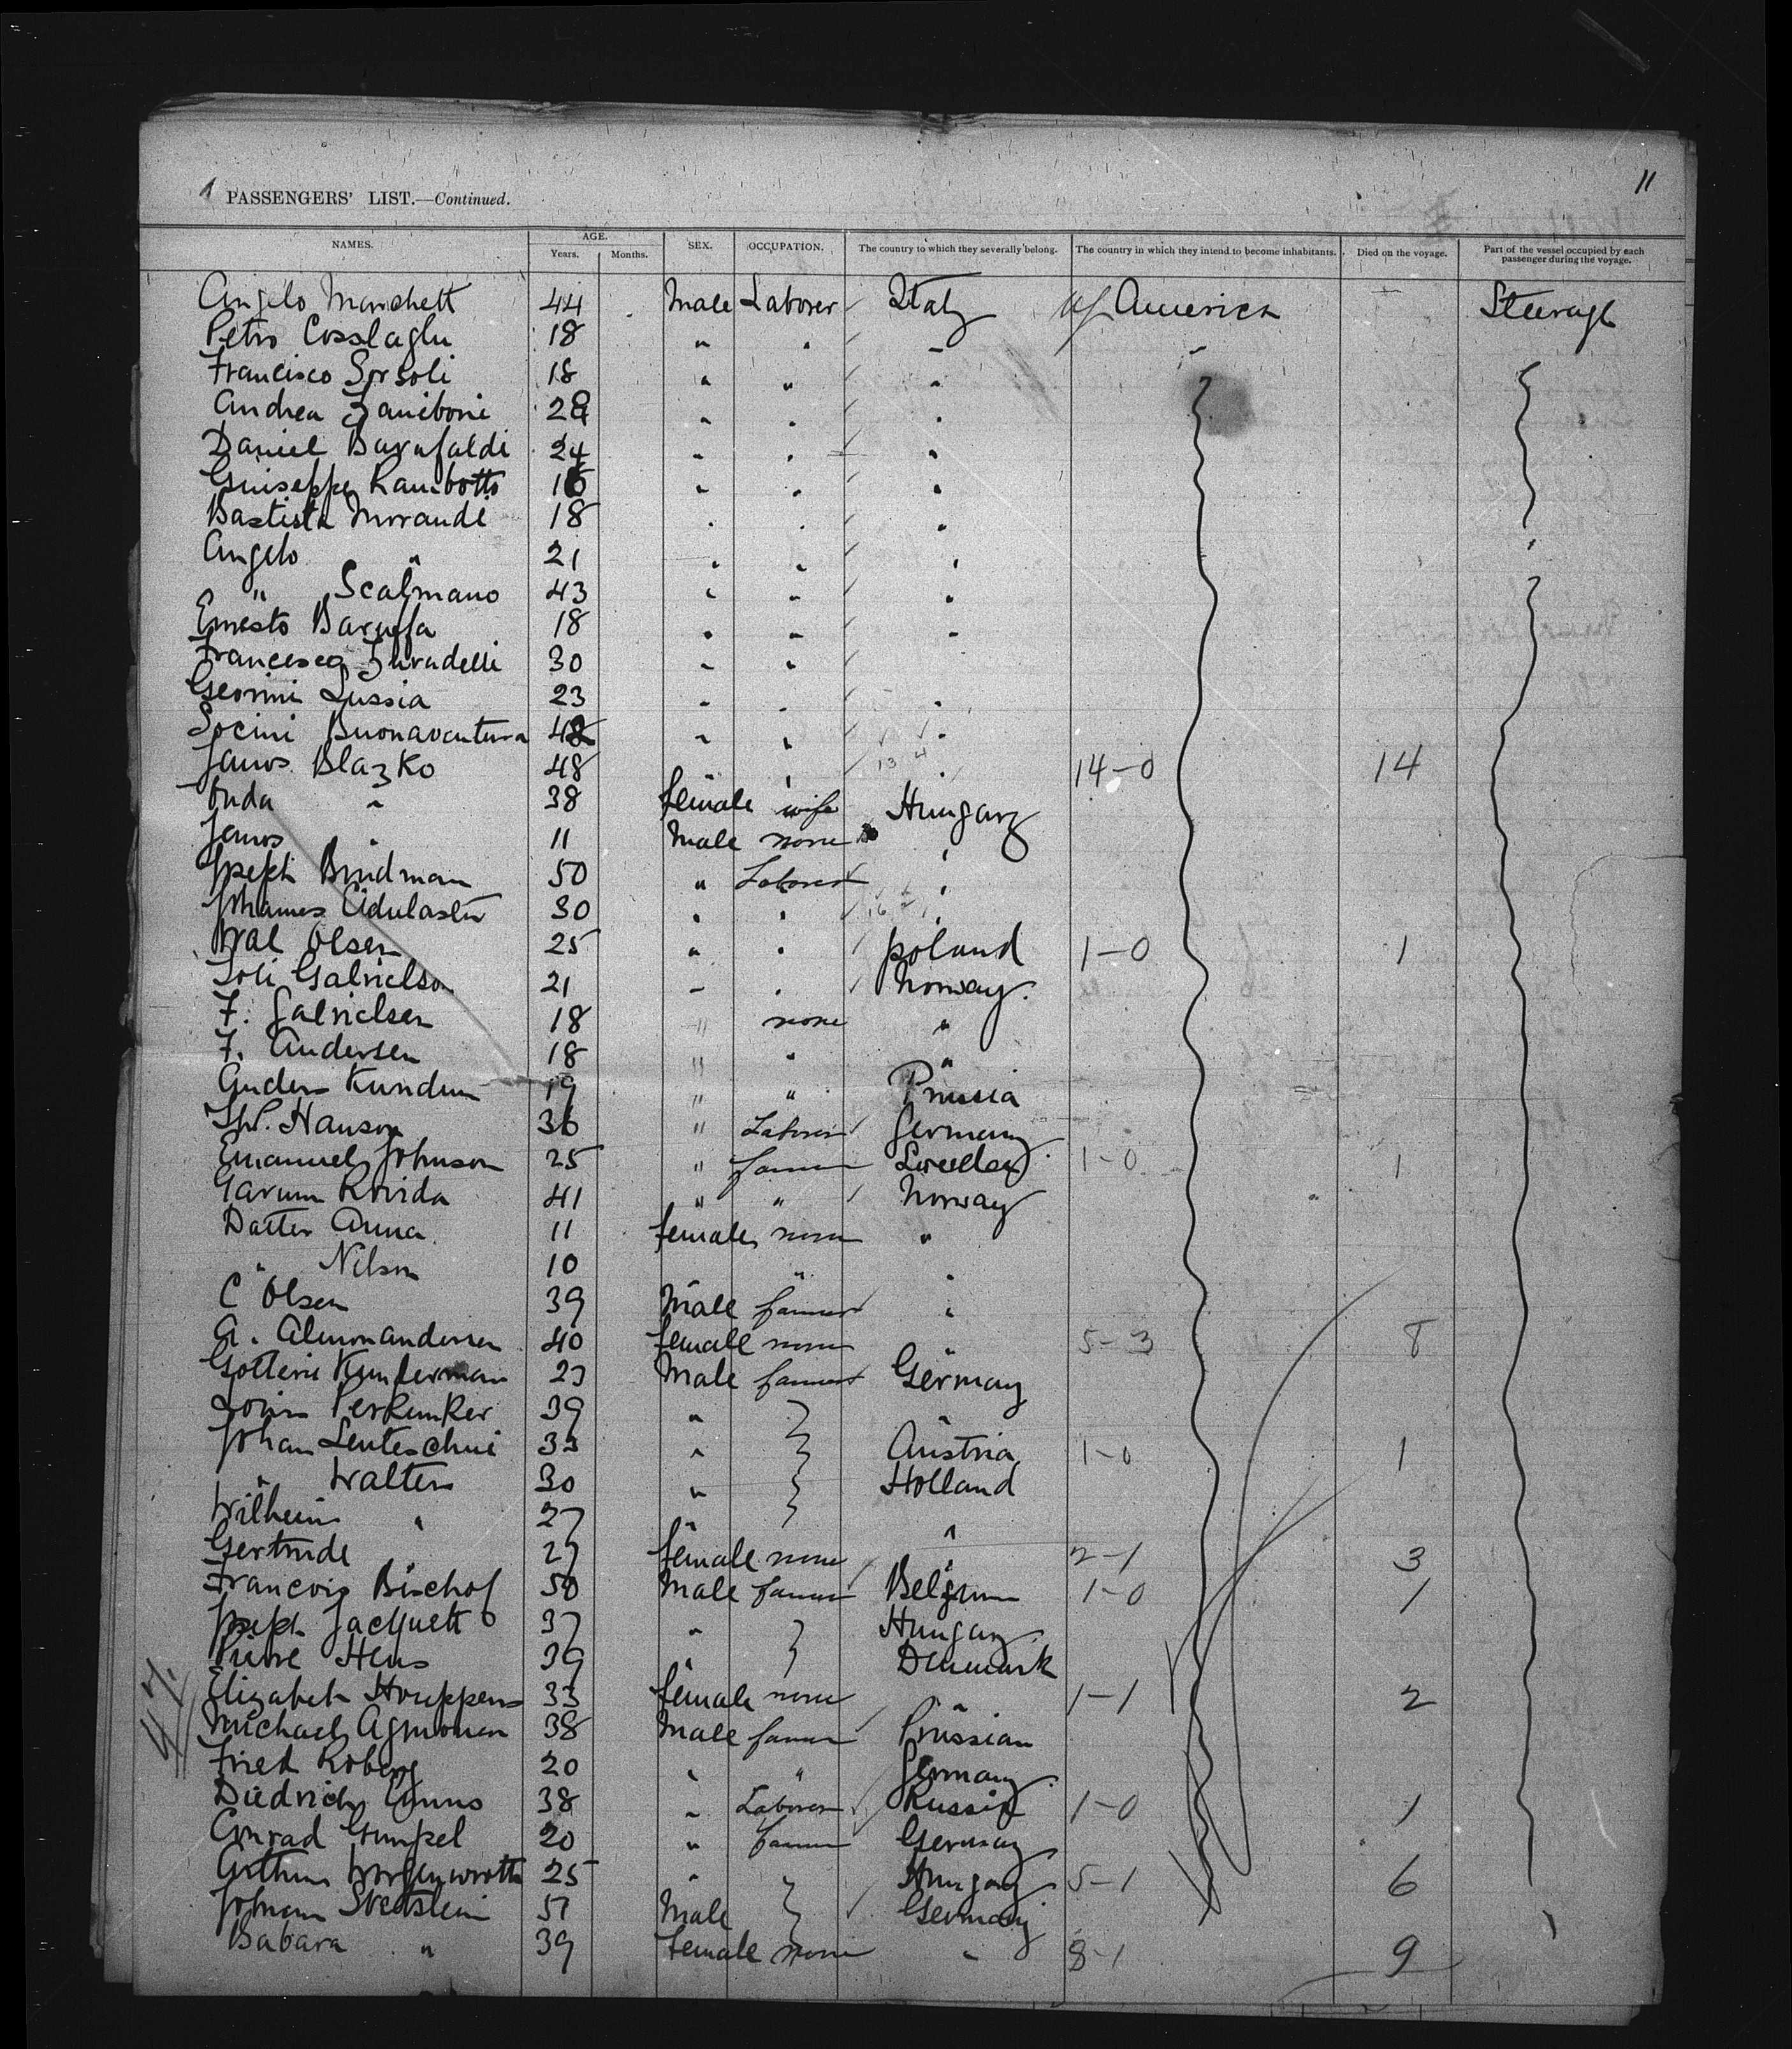 11
PASSENGERS' LIST.—Continued.
NAMES. AGE. Years. Months. SEX. OCCUPATION. The country to which they severally belong. The country in which they intend to become inhabitants. Died on the voyage. Part of the vessel occupied by each passenger during the voyage.
Angelo Marchett 44 Male Laborer Italy of America Steerage
Petro 18 " "
Francisco Sorsoli 18 " " "
Andrea Zaniboni " " "
Daniel Barufaldi 24 " " "
Guiseppe Rambotto " " "
Bastista Morandi 18 " " "
Angelo " 21 " " "
" Scalmano 43 " " "
Ernesto Baruffa 18 " " "
Francesco 30 " "
Lussia 23 " " "
Socini Buonaventura " " "
Janos Blazko 48 " 14-0 14
" 38 female wife Hungary
Janos " 11 Male none "
Joseph Brudman 50 " Laborer "
Johannes 30 " " "
Olsen 25 " " poland 1-0 1
Gabrielson 21 " " Norway
F. Gabrielsen 18 " none "
F. Andersen 18 " " "
19 " " Prussia
Hanson 36 " Laborer Germany
Emanuel Johnson 25 " farmer Sweden 1-0 1
41 " " Norway
Datter Anna 11 female none "
" Nilson 10 " "
C Olsen 39 Male farmer "
A. 40 female none " 5-3 8
Kunderman 23 Male farmer Germany
39 " "
Johan 33 " Austria 1-0 1
" Walters 30 " Holland
Wilheim " 27 "
Gertrude 27 female none " 2-1 3
Francois Bischof 50 Male farmer Belgium 1-0 1
Joseph Jacquett 37 " Hungary
Pierre Hens 39 " Denmark
47
Elizabeth Houppens 33 female none " 1-1 2
Michael 38 Male farmer Prussian
Fried Koberg 20 " " Germany
Diedrich 38 " Laborer Russia 1-0 1
Conrad Gumpel 20 " farmer Germany
25 " Hungary 5-1 6
Johann Male Germany
Babara " 39 female none " 8-1 9